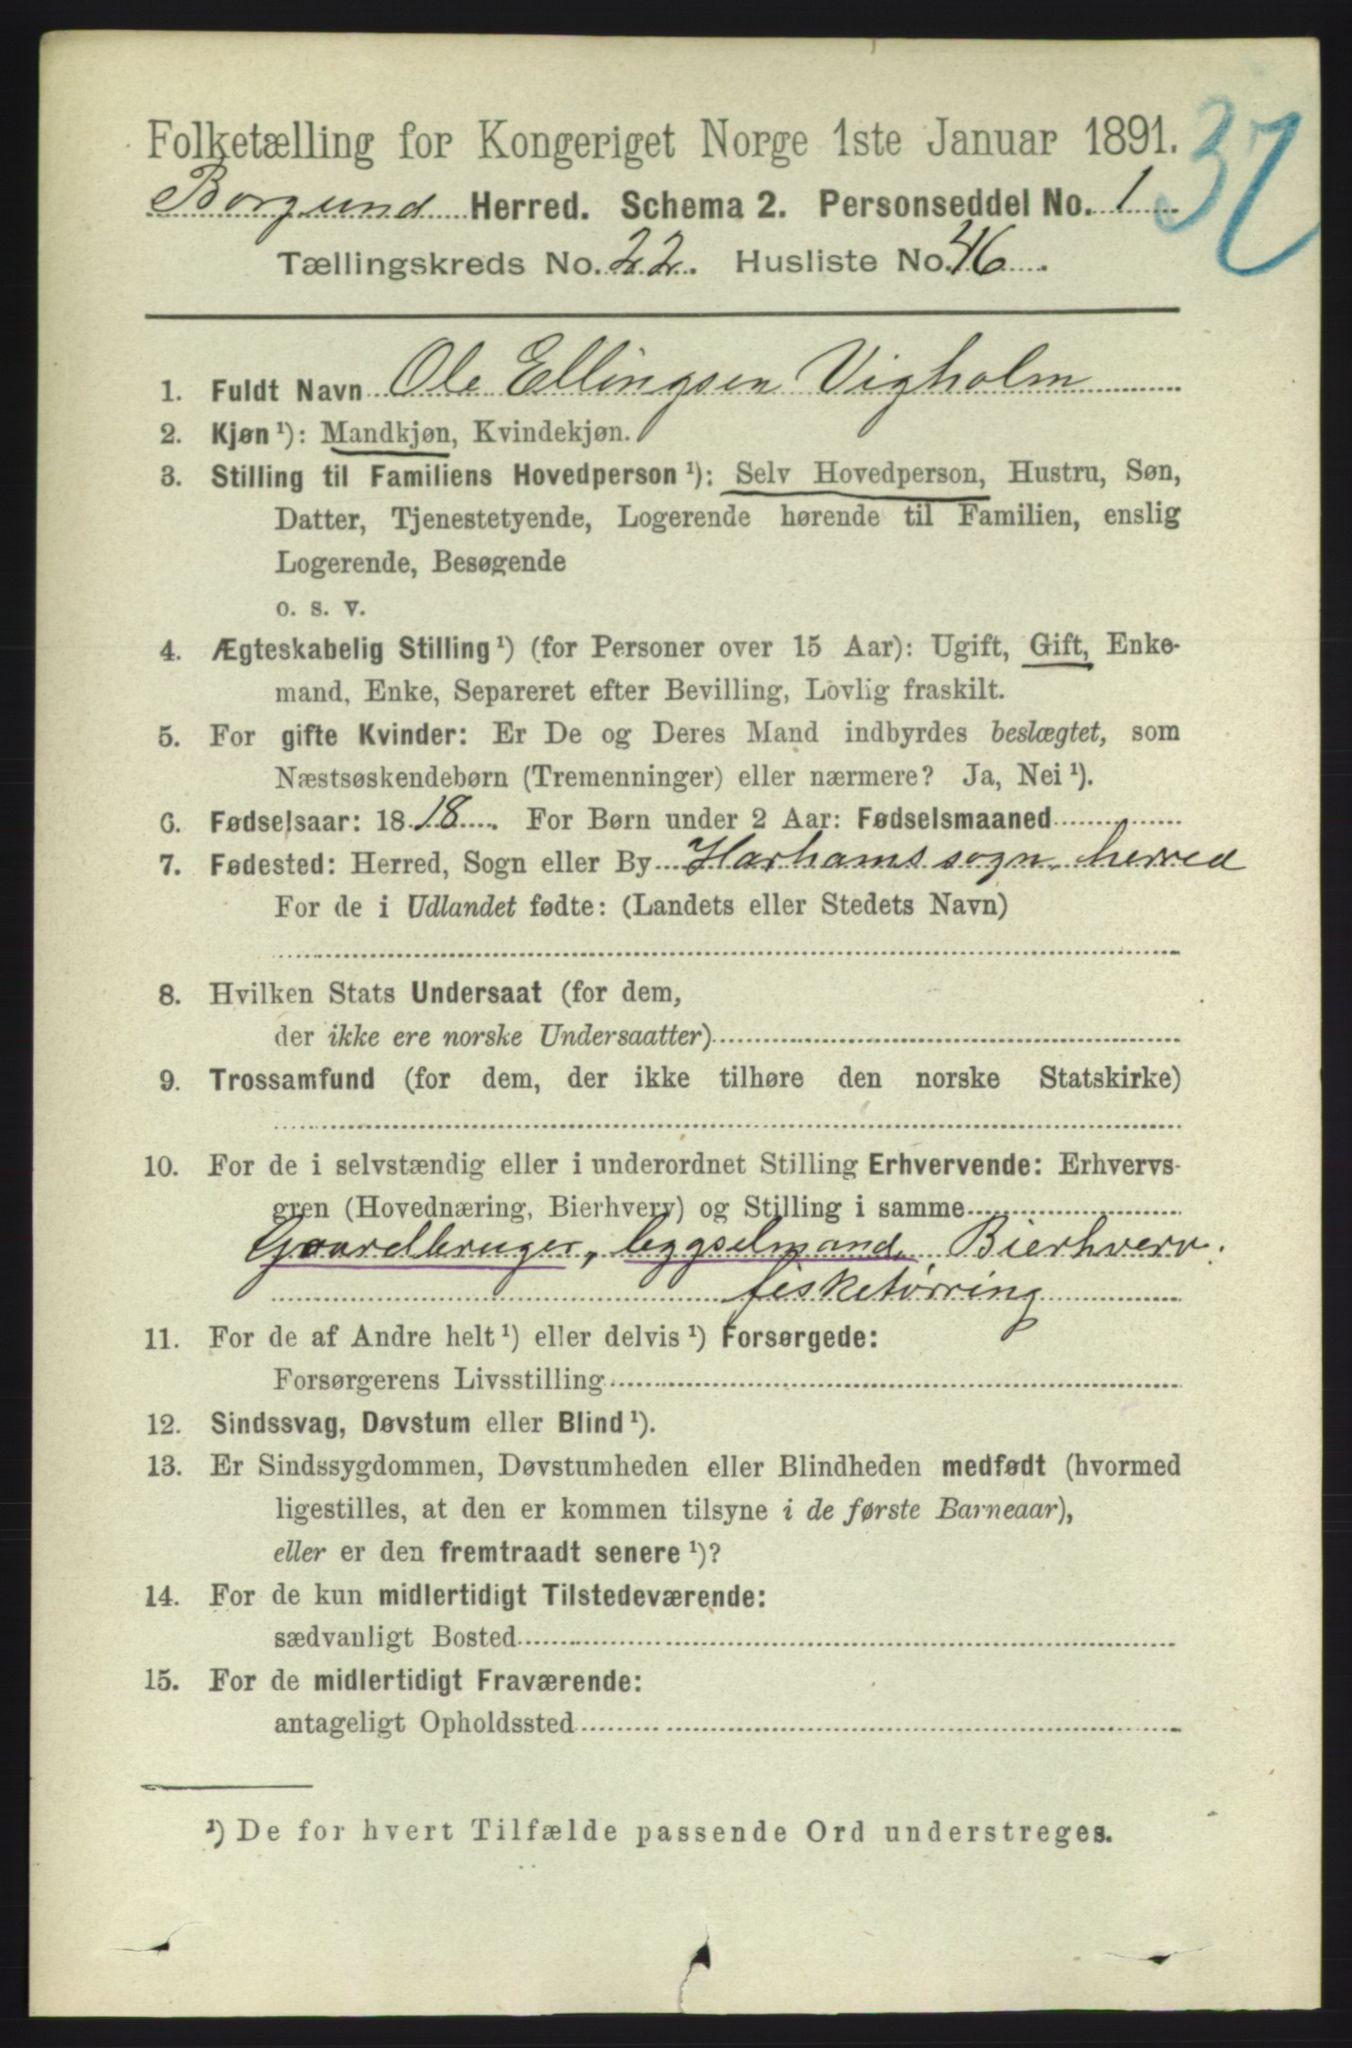 37
Folketælling for Kongeriget Norge 1ste Januar 1891.
Borgund Herred. Schema 2. Personseddel No. 1
Tællingskreds No. 22. Husliste No. 46.
1. Fuldt Navn Ole Ellingsen Vigholm
2. Kjøn ¹): Mandkjøn, Kvindekjøn.
3. Stilling til Familiens Hovedperson ¹): Selv Hovedperson, Hustru, Søn,
Datter, Tjenestetyende, Logerende hørende til Familien, enslig
Logerende, Besøgende
o. s. v.
4. Ægteskabelig Stilling ¹) (for Personer over 15 Aar): Ugift, Gift, Enke-
mand, Enke, Separeret efter Bevilling, Lovlig fraskilt.
5. For gifte Kvinder: Er De og Deres Mand indbyrdes beslægtet, som
Næstsøskendebørn (Tremenninger) eller nærmere? Ja, Nei ¹).
6. Fødselsaar: 1818. For Børn under 2 Aar: Fødselsmaaned
7. Fødested: Herred, Sogn eller By Harhams sogn, herred
For de i Udlandet fødte: (Landets eller Stedets Navn)
8. Hvilken Stats Undersaat (for dem,
der ikke ere norske Undersaatter)
9. Trossamfund (for dem, der ikke tilhøre den norske Statskirke)
10. For de i selvstændig eller i underordnet Stilling Erhvervende: Erhvervs-
gren (Hovednæring, Bierhverv) og Stilling i samme
Gaardbruger, leggselmand, Bierhverv.
fisketørring
11. For de af Andre helt ¹) eller delvis ¹) Forsørgede:
Forsørgerens Livsstilling
12. Sindssvag, Døvstum eller Blind ¹).
13. Er Sindssygdommen, Døvstumheden eller Blindheden medfødt (hvormed
ligestilles, at den er kommen tilsyne i de første Barneaar),
eller er den fremtraadt senere ¹)?
14. For de kun midlertidigt Tilstedeværende:
sædvanligt Bosted
15. For de midlertidigt Fraværende:
antageligt Opholdssted
¹) De for hvert Tilfælde passende Ord understreges.